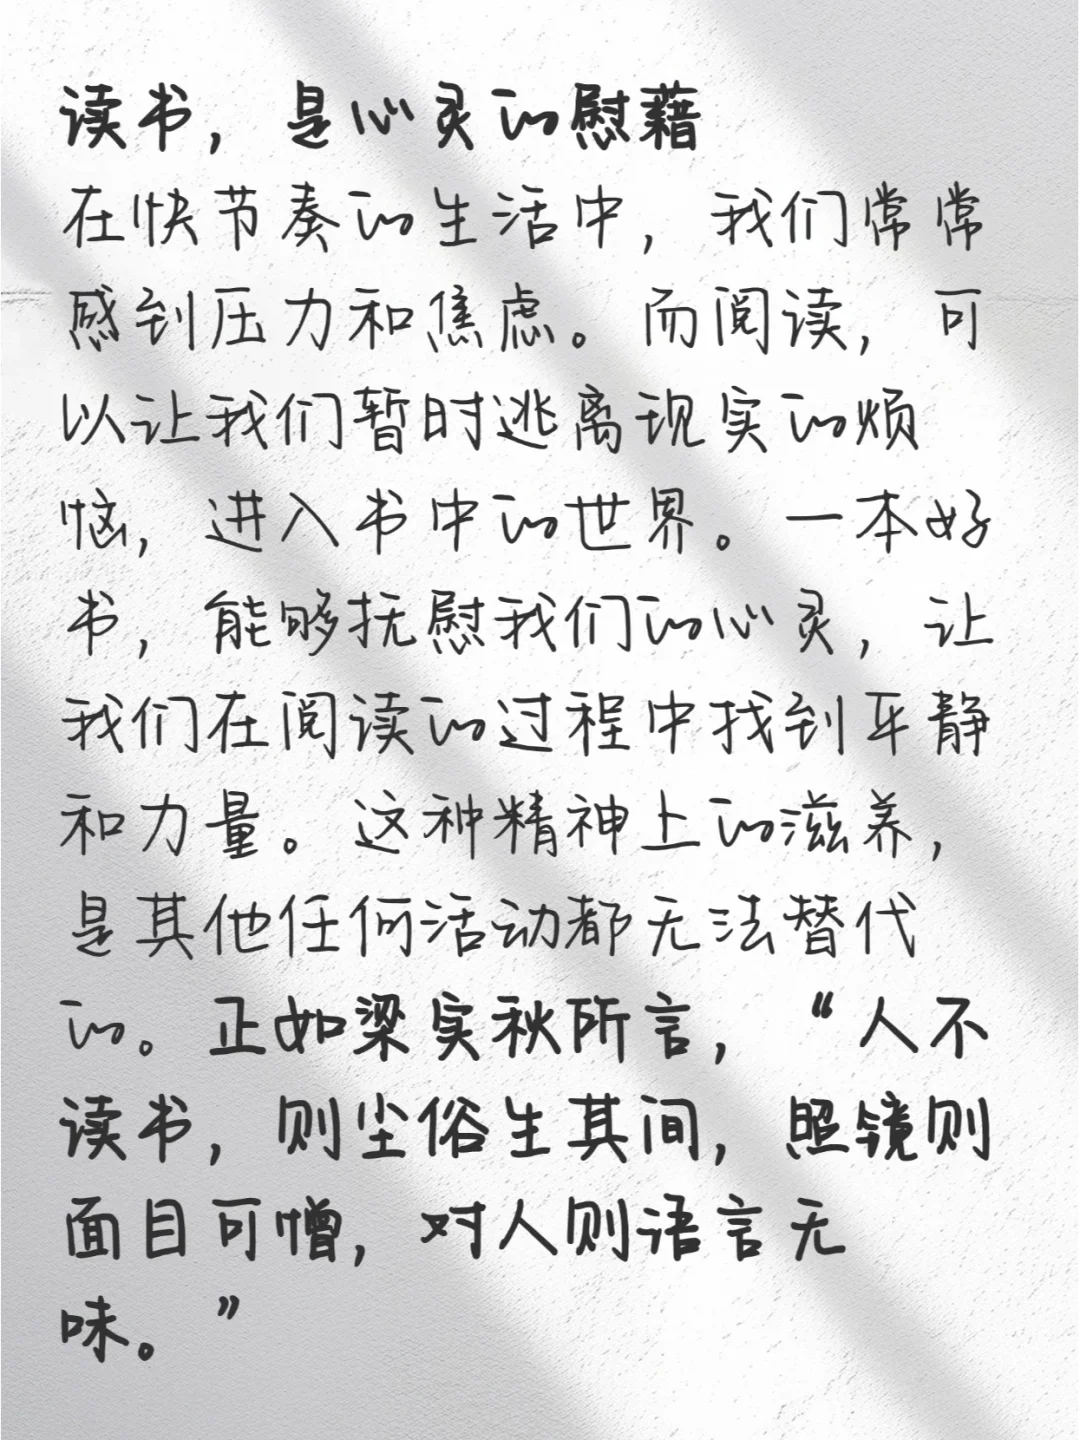 读书，是心灵的慰藉
在快节奏的生活中，我们常常
感到压力和焦虑。而阅读，可
以让我们暂时逃离现实的烦
恼，进入书中的世界。一本好
书，能够抚慰我们的心灵，让
我们在阅读的过程中找到平静
和力量。这种精神上的滋养，
是其他任何活动都无法替代
的。正如梁实秋所言，“人不
读书，则尘俗生其间，照镜则
面目可憎，对人则语言无
味。”